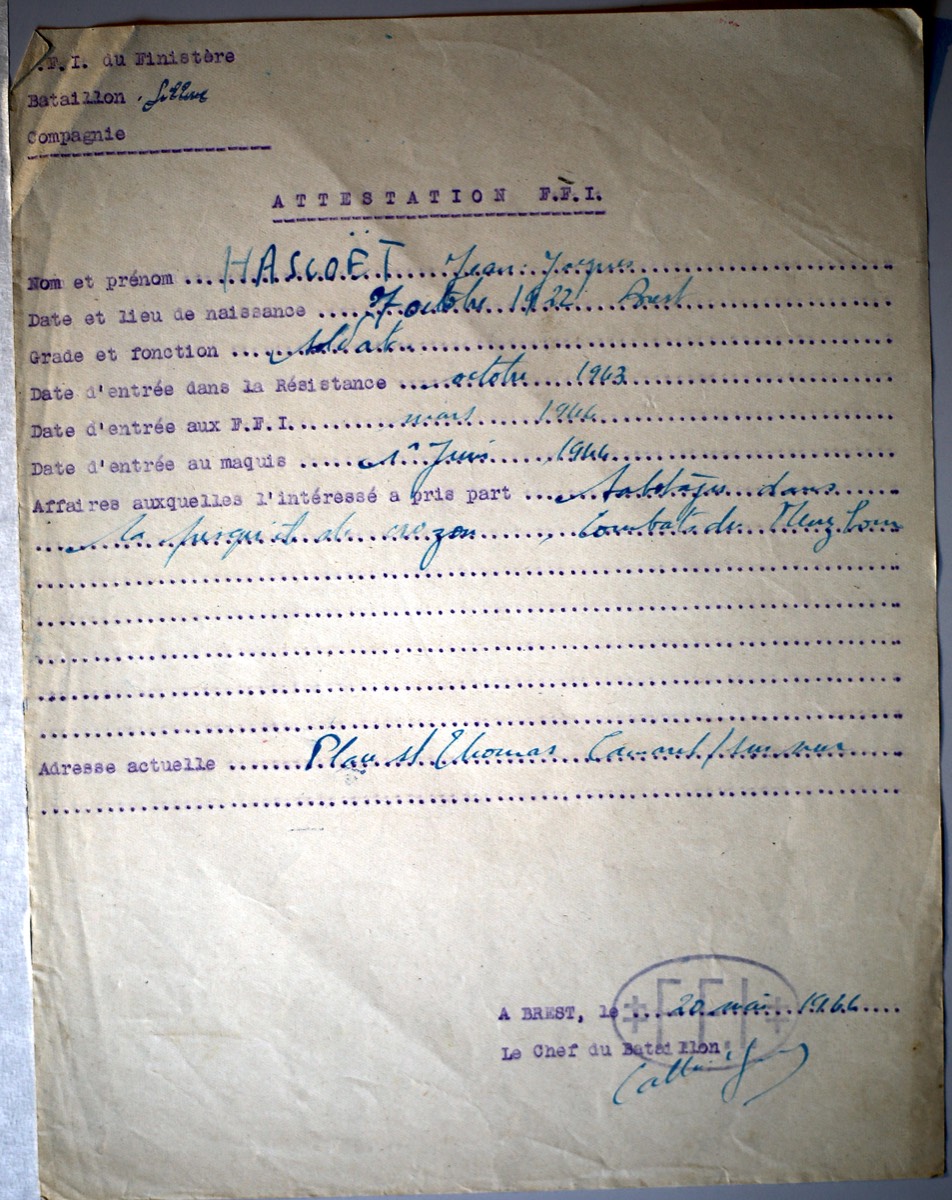 F.F.I. du Finistère
Bataillon
Compagnie
ATTESTATION F.F.I.
Nom et prénom ... HASCOËT Jean-Jacques
Date et lieu de naissance ... 27 octobre 1922 Brest
Grade et fonction ... soldat
Date d'entrée dans la Résistance ... octobre 1943
Date d'entrée aux F.F.I. ... mars 1944
Date d'entrée au maquis ... 1er Juin 1944
Affaires auxquelles l'intéressé a pris part ... sabotages dans
la presqu'île de crozon, Combats du Menez hom
Adresse actuelle ... Place St Thomas Camaret/sur mer
A BREST, le ... 20 mai 1944
FFI
Le Chef du Bataillon